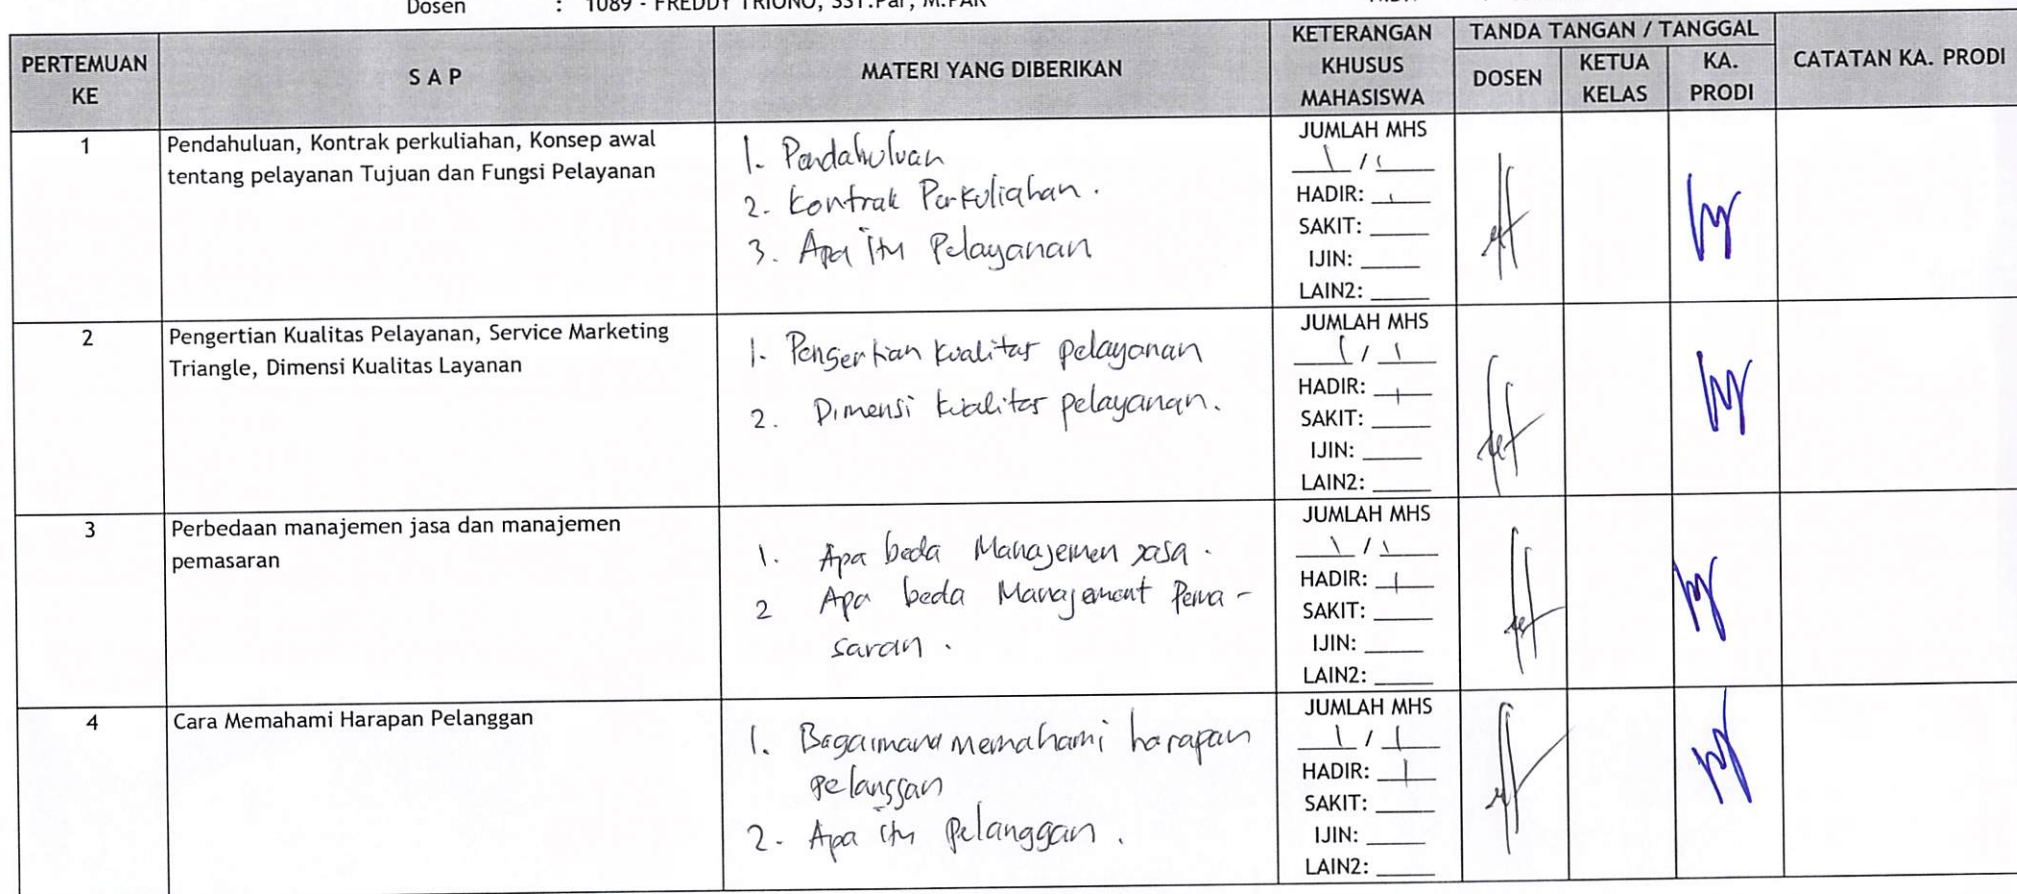 Dosen : 1089 - FREDDY TRIONO, SST.Par, M.PAR
PERTEMUAN KE
S A P
MATERI YANG DIBERIKAN
KETERANGAN KHUSUS MAHASISWA
TANDA TANGAN / TANGGAL
DOSEN
KETUA KELAS
KA. PRODI
CATATAN KA. PRODI
1
Pendahuluan, Kontrak perkuliahan, Konsep awal
tentang pelayanan Tujuan dan Fungsi Pelayanan
1. Pendahuluan
2. Kontrak Perkuliahan.
3. Apa itu Pelayanan
JUMLAH MHS
1 / 1
HADIR: 1
SAKIT:
IJIN:
LAIN2:
2
Pengertian Kualitas Pelayanan, Service Marketing
Triangle, Dimensi Kualitas Layanan
1. Pengertian kualitas pelayanan
2. Dimensi kualitas pelayanan.
JUMLAH MHS
1 / 1
HADIR: 1
SAKIT:
IJIN:
LAIN2:
3
Perbedaan manajemen jasa dan manajemen
pemasaran
1. Apa beda Manajemen Jasa.
2 Apa beda Manajement Pema-
saran.
JUMLAH MHS
1 / 1
HADIR: 1
SAKIT:
IJIN:
LAIN2:
4
Cara Memahami Harapan Pelanggan
1. Bagaimana memahami harapan
pelanggan
2. Apa itu pelanggan.
JUMLAH MHS
1 / 1
HADIR: 1
SAKIT:
IJIN:
LAIN2: